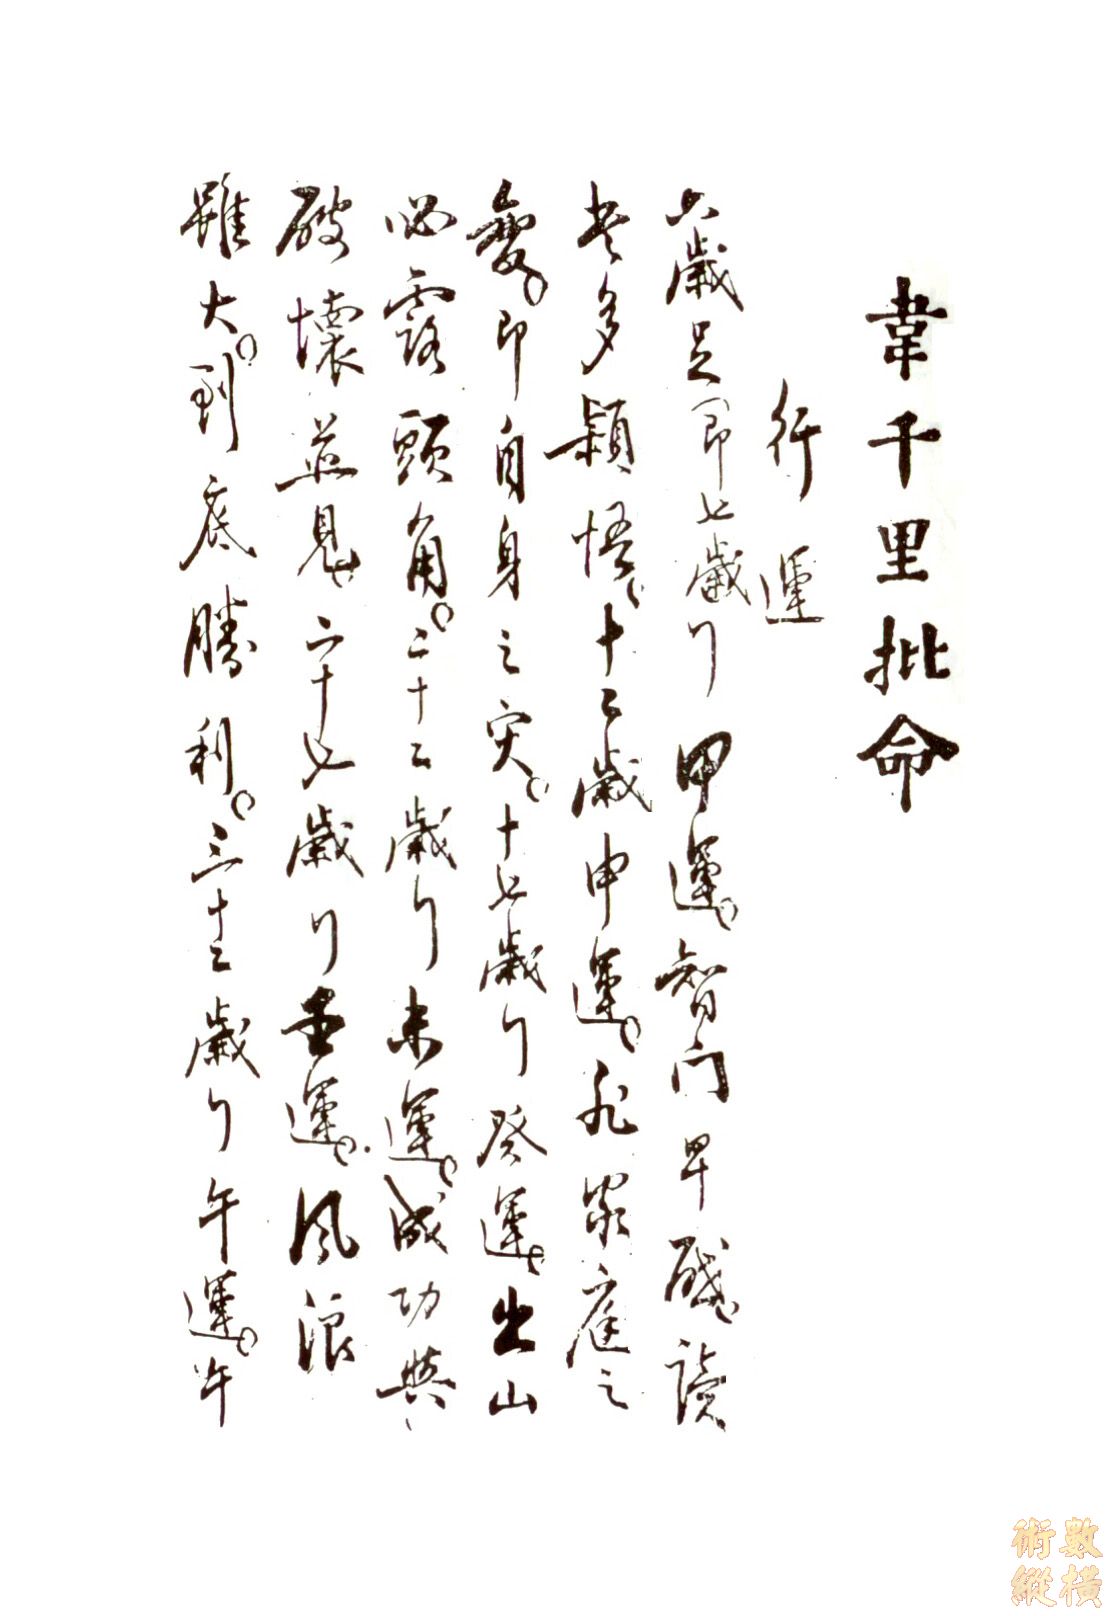 韋千里批命
行運
六歲足即七歲行甲運。智門早啟、讀
書多穎悟、十二歲申運。非家庭之
變。即自身之災。十七歲行癸運。出山
必露頭角。二十二歲行未運。成功與
破壞並見、二十七歲行壬運。風浪
雖大。到底勝利。三十二歲行午運。午
術數縱橫